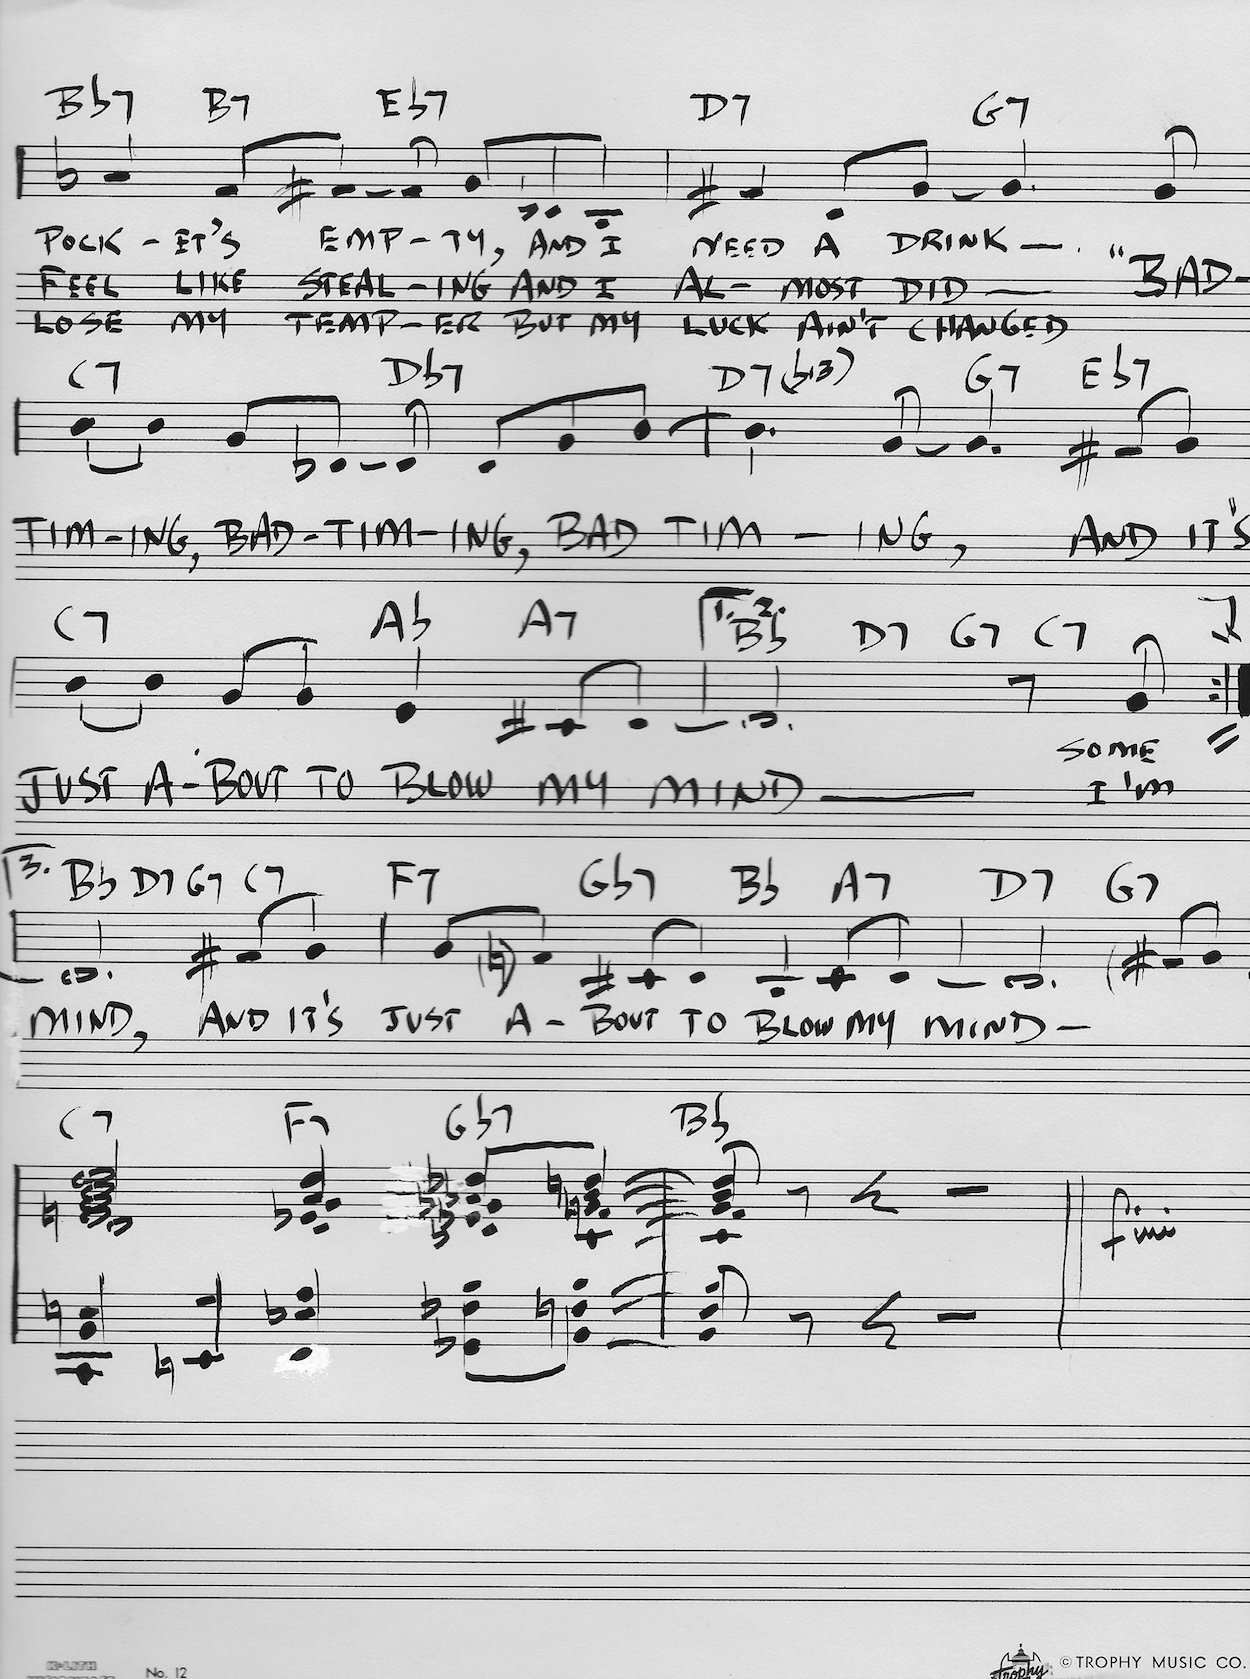 B♭7 B7 E♭7 D7 G7
POCK - ET'S EMP - TY, AND I NEED A DRINK —. "BAD-
FEEL LIKE STEAL - ING AND I AL - MOST DID —
LOSE MY TEMP - ER BUT MY LUCK AIN'T CHANGED
C7 D♭7 D7(♭13) G7 E♭7
TIM - ING, BAD - TIM - ING, BAD TIM - ING, AND IT'S"
1. 2.
C7 A♭ A7 B♭ D7 G7 C7
SOME
JUST A - BOUT TO BLOW MY MIND — I'M
3. B♭ D7 G7 C7 F7 G♭7 B♭ A7 D7 G7
MIND, AND IT'S JUST A - BOUT TO BLOW MY MIND —
C7 F7 G♭7 B♭
fini
No. 12
Trophy © TROPHY MUSIC CO.